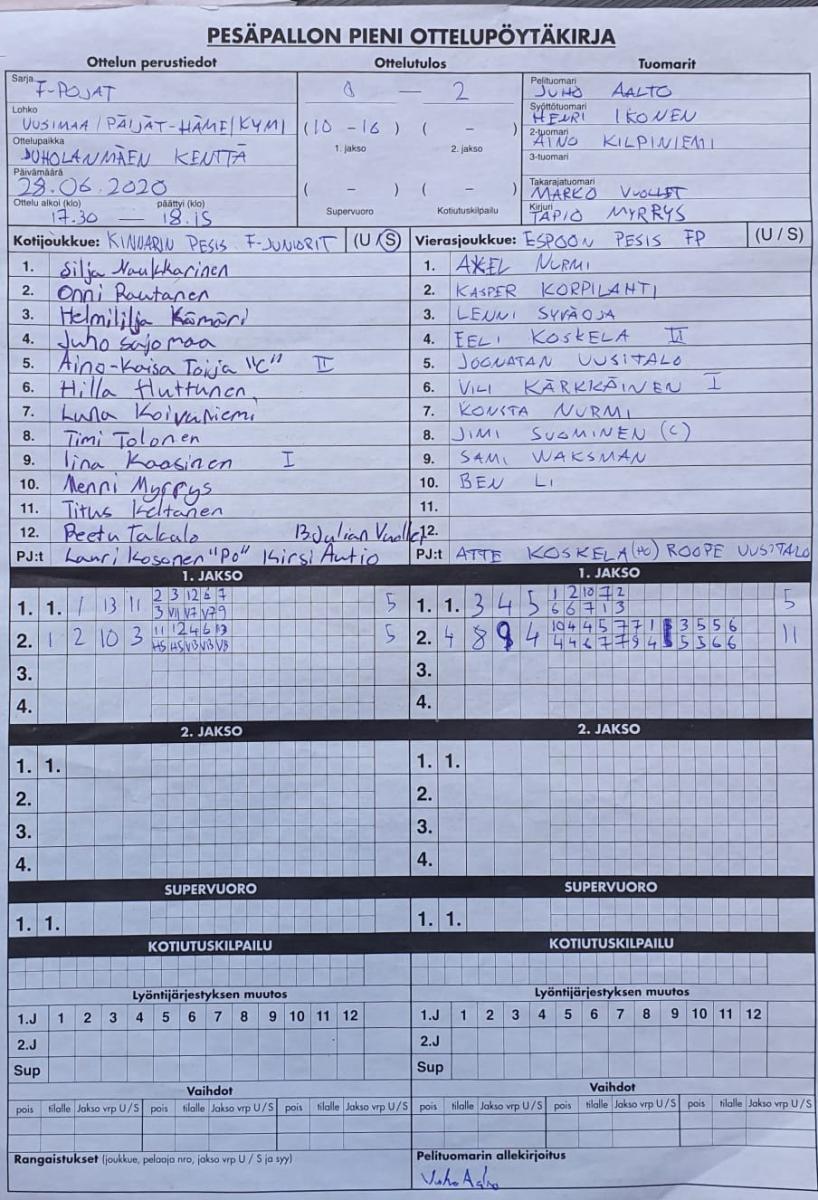 PESÄPALLON PIENI OTTELUPÖYTÄKIRJA
Ottelun perustiedot Ottelutulos Tuomarit
Sarja F-POJAT
0 — 2
Pelituomari JUHO AALTO
Lohko UUSIMAA / PÄIJÄT-HÄME / KYMI
(10 - 16) ( - )
1. jakso 2. jakso
Syöttötuomari HENRI IKONEN
Ottelupaikka SUHOLANMÄEN KENTTÄ
2-tuomari AINO KILPINIEMI
3-tuomari
Päivämäärä 28.06.2020
( - ) ( - )
Supervuoro Kotiutuskilpailu
Takarajatuomari MARKO VUOLLET
Ottelu alkoi (klo) päättyi (klo)
17.30 — 18.15
Kirjuri TAPIO MYRRYS
Kotijoukkue: KINNARIN PESIS F-JUNIORIT (U / S)
1. Silja Naukkarinen
2. Onni Rautanen
3. Helmililja Kämäri
4. Juho Sajomaa
5. Aino-Kaisa Toija "C" II
6. Hilla Huttunen
7. Luna Koivuniemi
8. Timi Tolonen
9. Iina Kaasinen I
10. Menni Myrrys
11. Titus Keltanen
12. Peetu Takalo 13 Julian Vuollet
PJ:t Lauri Kosonen "PO" Kirsi Autio
Vierasjoukkue: ESPOON PESIS FP (U / S)
1. AXEL NURMI
2. KASPER KORPILAHTI
3. LENNI SYVÄOJA
4. EELI KOSKELA II
5. JOONATAN UUSITALO
6. VILI KÄRKKÄINEN I
7. KONSTA NURMI
8. JIMI SUOMINEN (C)
9. SAMI WAKSMAN
10. BEN LI
11.
12.
PJ:t ATTE KOSKELA (HO) ROOPE UUSITALO
1. JAKSO
1. 1. 1 13 11 2 3 12 6 7 5
3 VII V7 V7 9
2. 1 2 10 3 11 12 4 6 13 5
H5 H5 V13 V13 V13
3.
4.
1. JAKSO
1. 1. 3 4 5 1 2 10 7 2 5
6 6 7 1 3
2. 4 8 9 4 10 4 4 5 7 7 1 3 5 5 6 11
4 4 6 7 7 9 4 5 5 6 6
3.
4.
2. JAKSO
1. 1.
2.
3.
4.
2. JAKSO
1. 1.
2.
3.
4.
SUPERVUORO
1. 1.
SUPERVUORO
1. 1.
KOTIUTUSKILPAILU
KOTIUTUSKILPAILU
Lyöntijärjestyksen muutos
1.J 1 2 3 4 5 6 7 8 9 10 11 12
2.J
Sup
Lyöntijärjestyksen muutos
1.J 1 2 3 4 5 6 7 8 9 10 11 12
2.J
Sup
Vaihdot
pois tilalle Jakso vrp U / S pois tilalle Jakso vrp U / S pois tilalle Jakso vrp U / S
Vaihdot
pois tilalle Jakso vrp U / S pois tilalle Jakso vrp U / S pois tilalle Jakso vrp U / S
Rangaistukset (joukkue, pelaaja nro, jakso vrp U / S ja syy)
Pelituomarin allekirjoitus
Juho Aalto